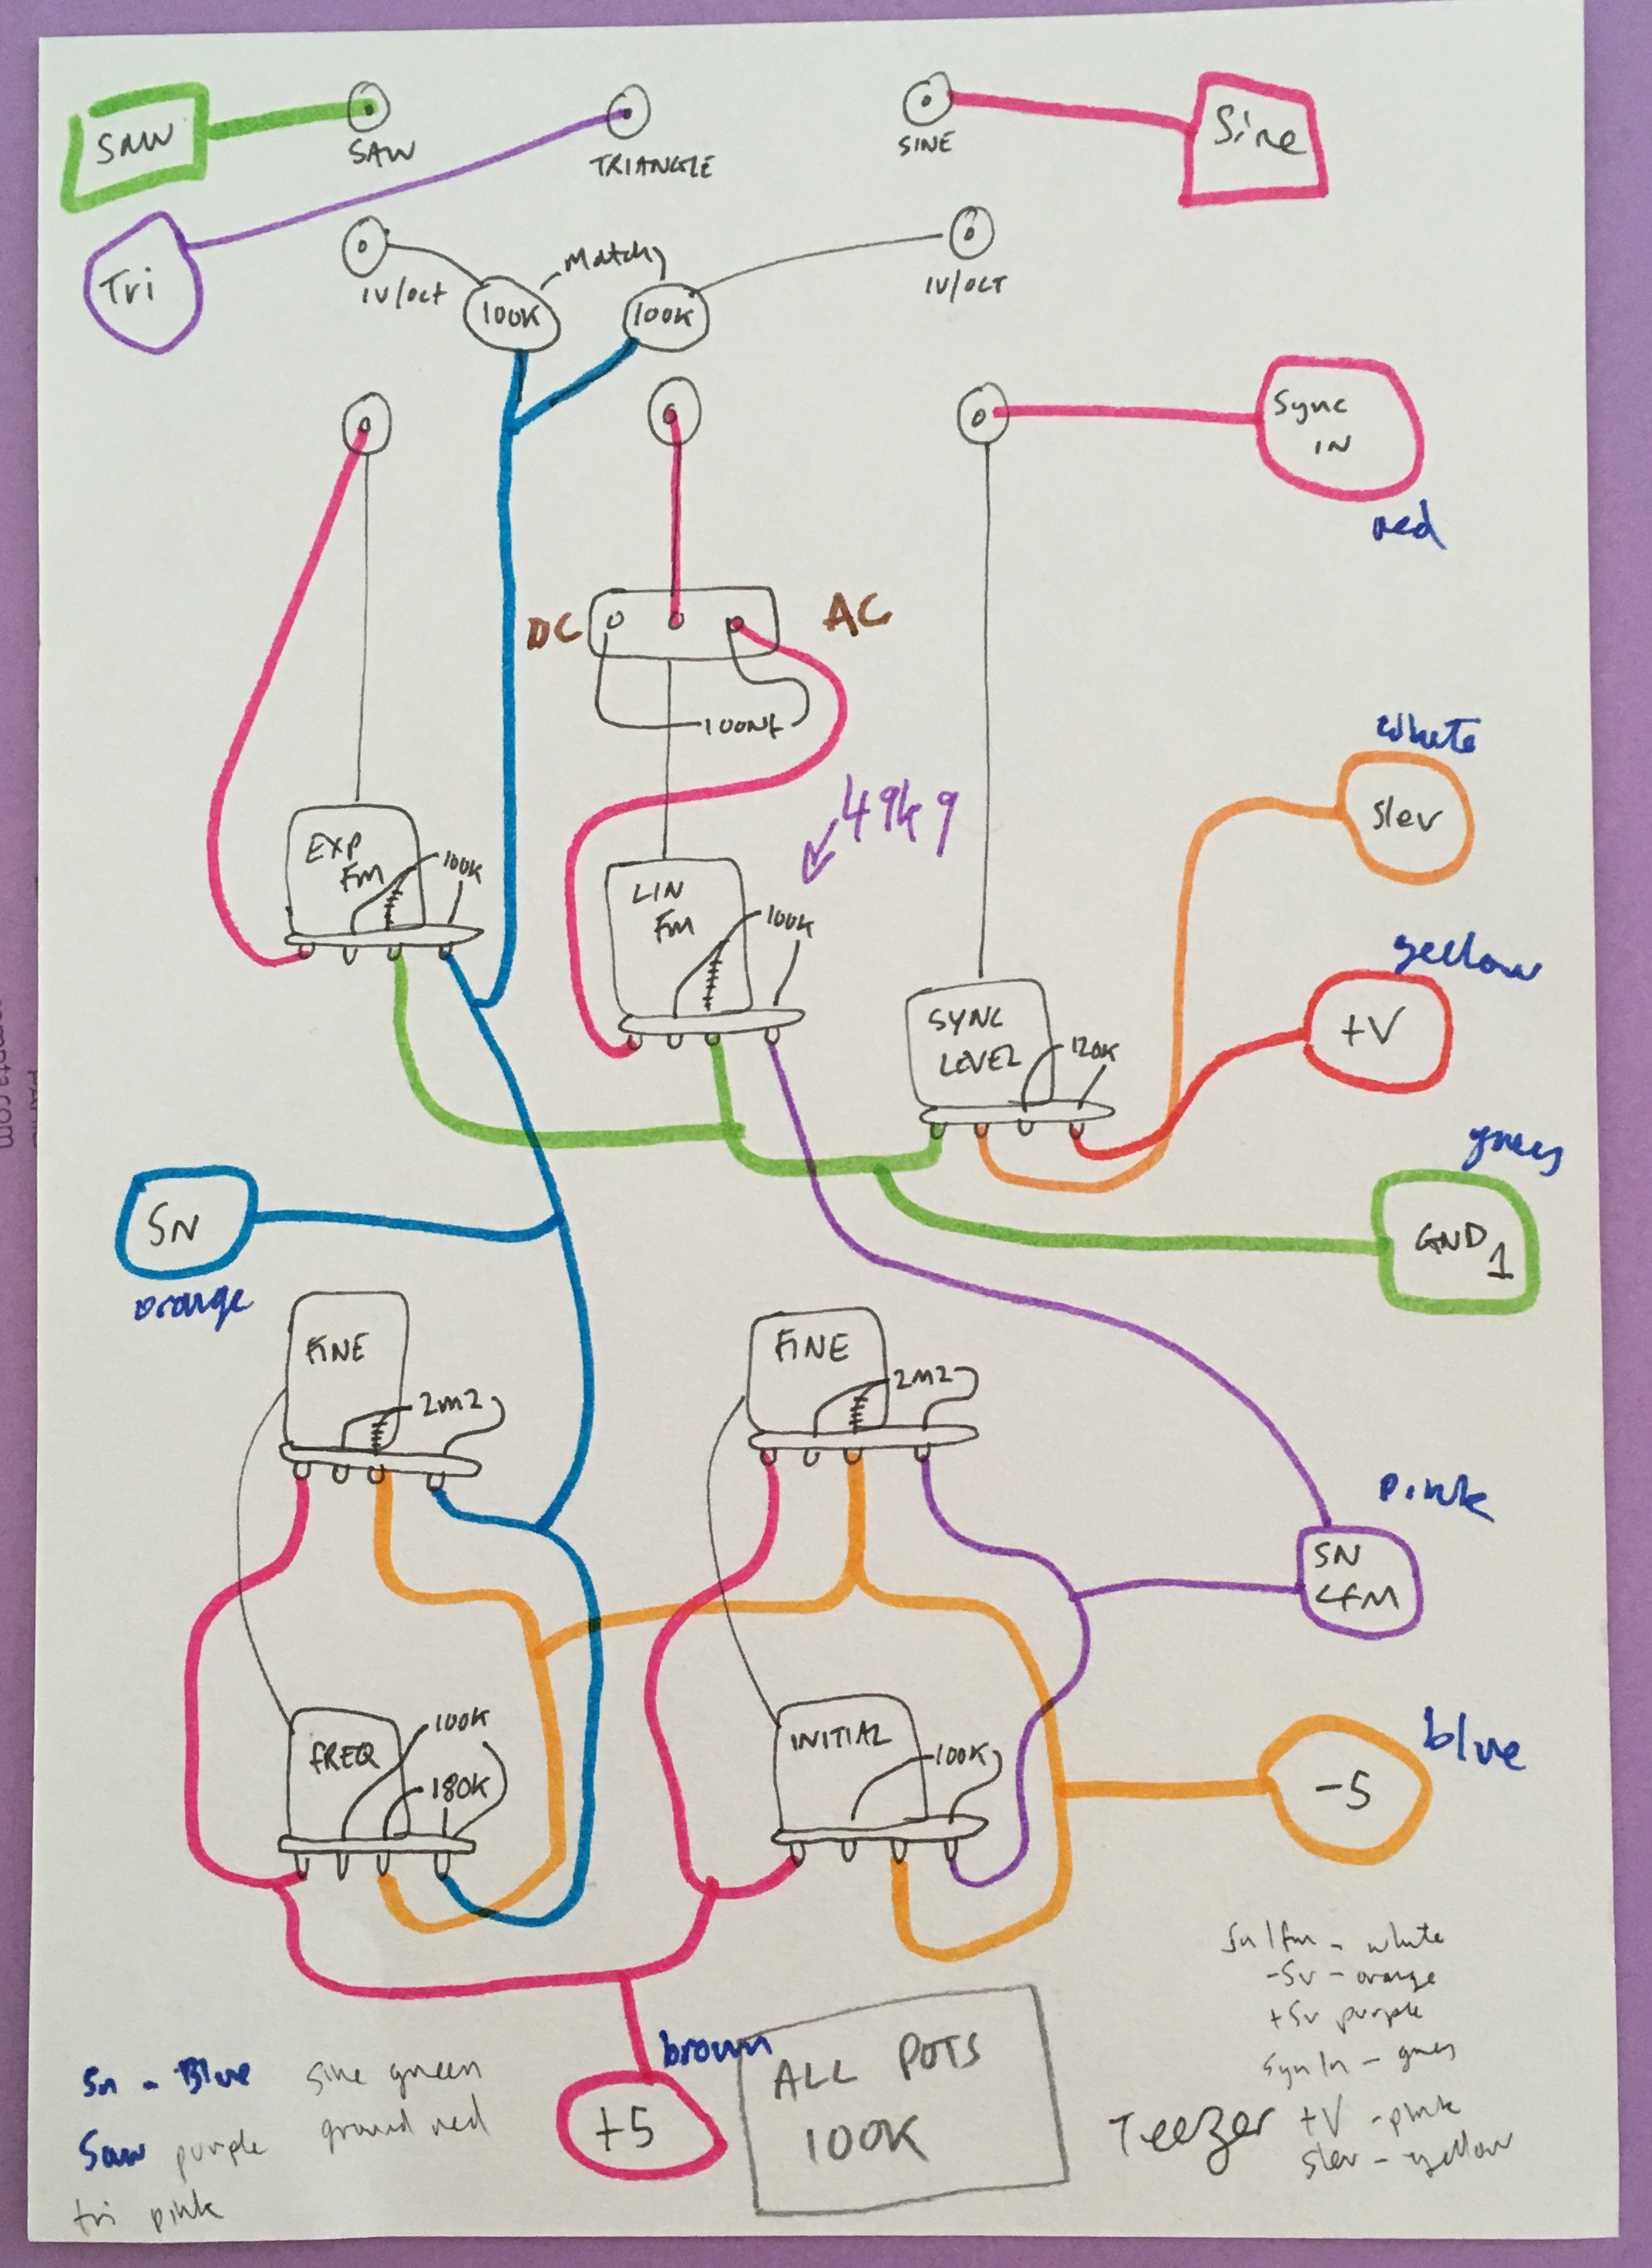 SAW
SAW
TRIANGLE
SINE
Sine
Tri
1V/oct
Match
100K
100K
1V/OCT
Sync
IN
red
DC
AC
100Nf
white
Slev
49k9
EXP
FM
100K
LIN
FM
100K
yellow
+V
SYNC
LEVEL
120K
green
GND1
SN
orange
FINE
2M2
FINE
2M2
pink
SN
LFM
FREQ
100K
180K
INITIAL
100K
blue
-5
Sn lfm - white
-5v - orange
+5v purple
+5
brown
ALL POTS
100K
Sn - Blue
Saw purple
tri pink
Sine green
ground red
Teezer
+V - pink
Slev - yellow